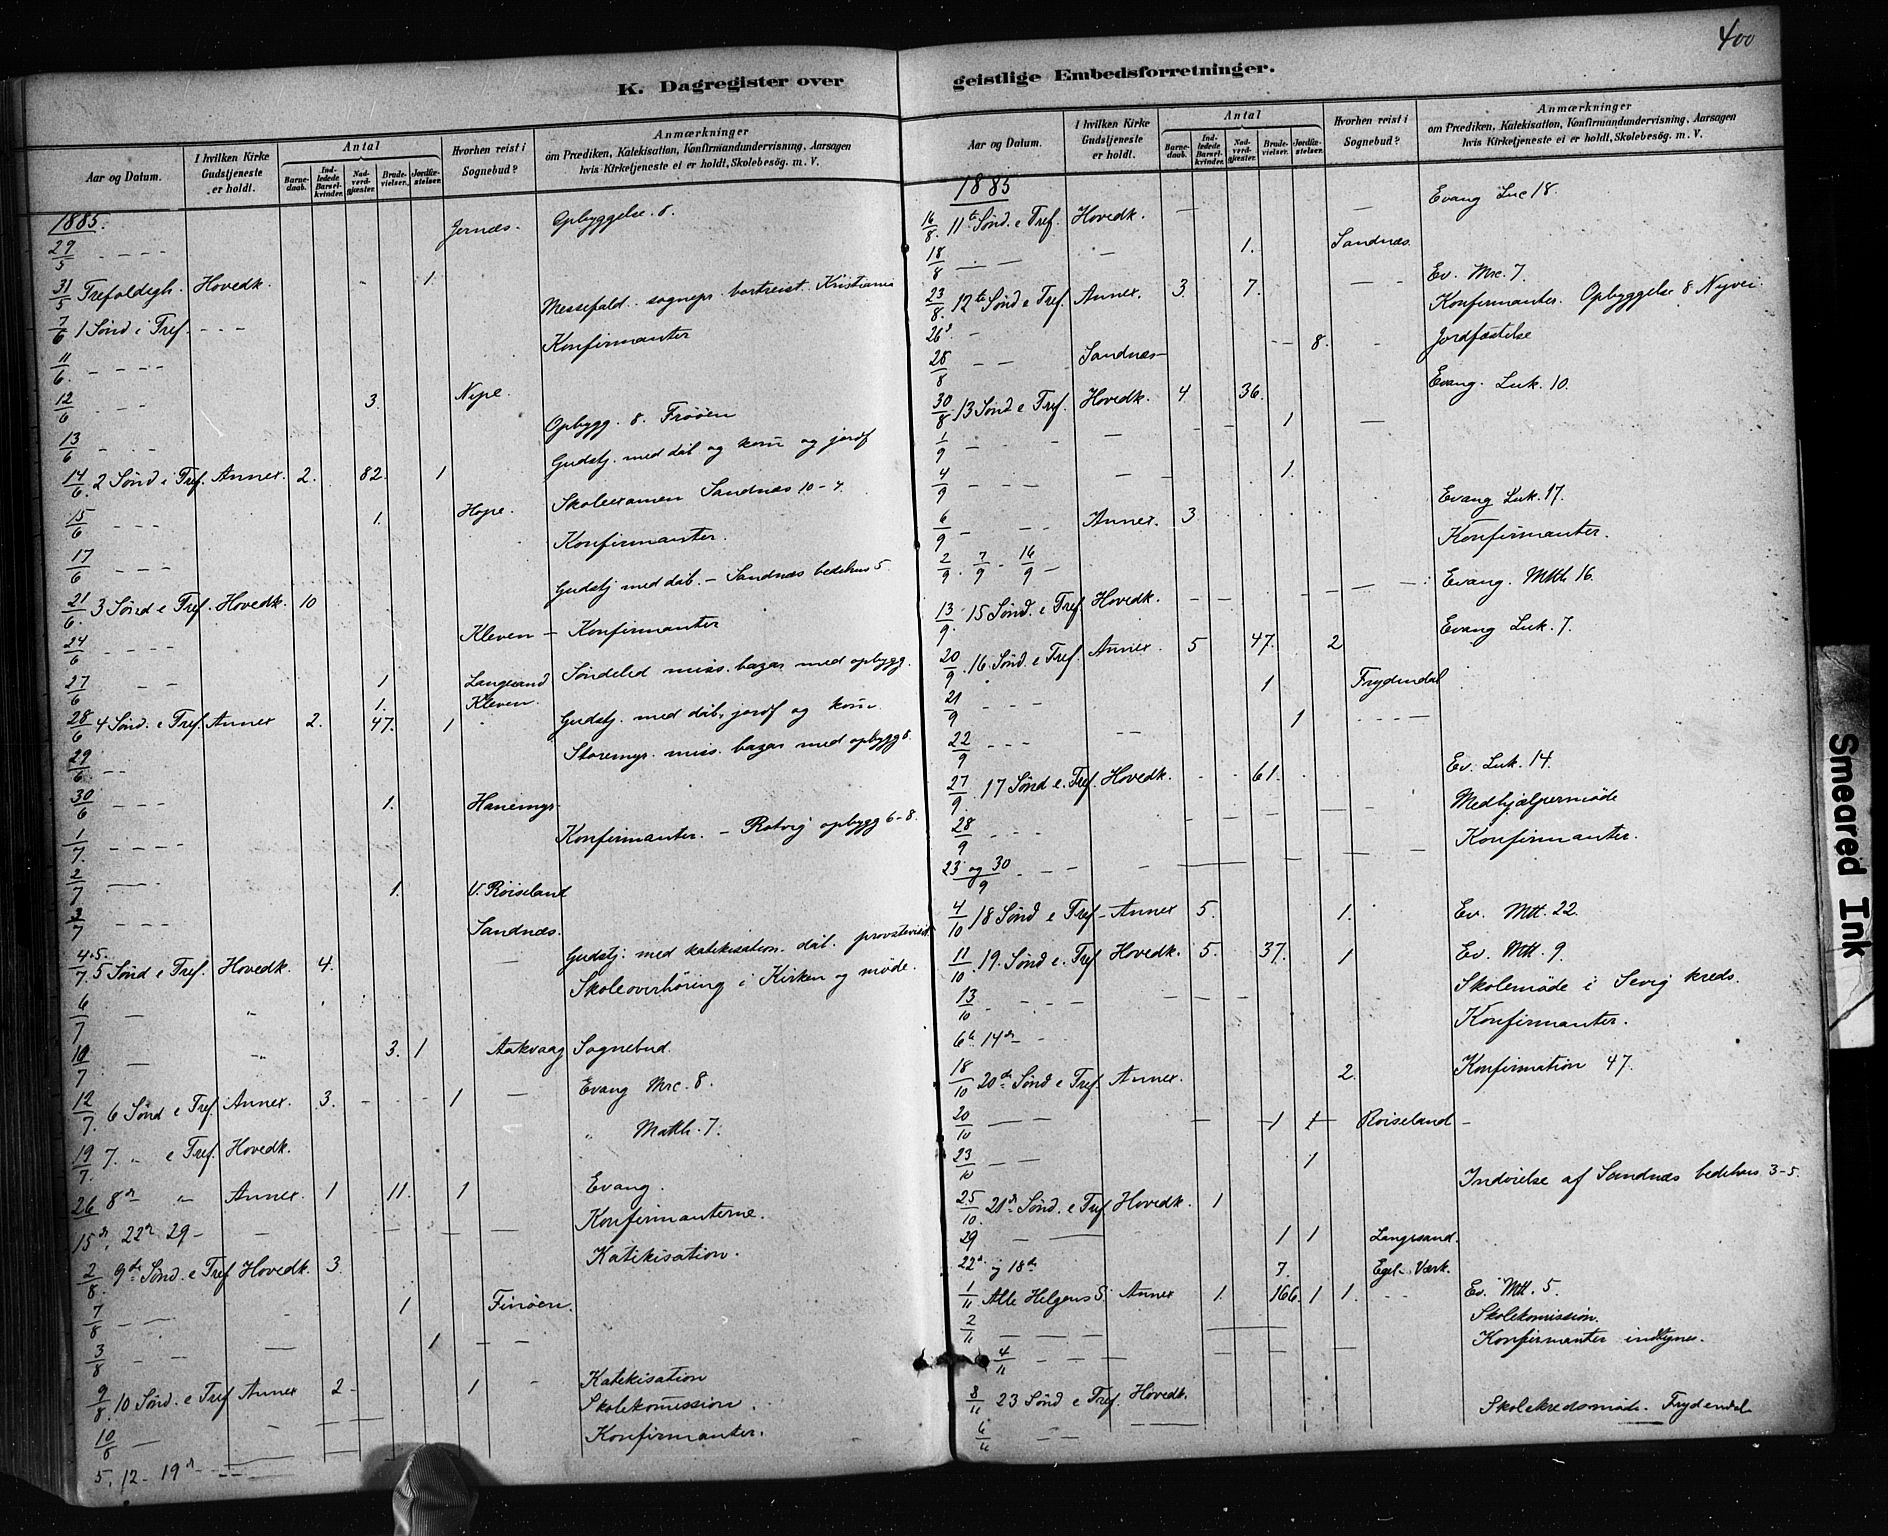 400
K. Dagregister over
Aar og Datum.
I hvilken Kirke Gudstjeneste er holdt.
Antal
Barnedaab.
Indledede Barselkvinder.
Nadverdgjæster.
Brudevielser.
Jordfæstelser.
Hvorhen reist i Sognebud?
Anmærkninger
om Prædiken, Katekisation, Konfirmandundervisning, Aarsagen
hvis Kirketjeneste ei er holdt, Skolebesøg. m. V.
1885.
29/5 - - - - Jernæs. Opbyggelse. 8.
31/5 Trefoldigh. Hovedk. - 1.
7/6 1 Sønd e Tref. - - - Messefald. sognepr. bortreist. Kristiania
11/6. - - - - Konfirmanter
12/6 - - - 3. Nipe.
13/6 - - - Opbygg. 8. Frøöen
14/6. 2 Sønd e Tref. Annex. 2. 82. 1 Gudstj. med dåb og kom̄ og jordf
15/6 - - - 1. Hope. Skoleexamen Sandnæs 10-7.
17/6 - - - Konfirmanter.
21/6. 3 Sønd e Tref. Hovedk. 10 Gudstj med dåb. - Sandnæs bedehus 5
24/6 - - - Kleven - Konfirmanter
27/6 - - 1 Langsand Søndeled miss. bazar med opbygg.
1. Kleven.
28/6 4 Sønd. e Tref. Annex 2. 47. 1 Gudstj. med dåb, jordf og kom̄.
29/6 - - Storemyr. miss. bazar med opbygg 8.
30/6 - - - 1. Hanemyr.
1/7. - - - - Konfirmanter. - Rotvig opbygg 6-8.
2/7 - - - 1. V. Röiseland
3/7 - - - - Sandnæs.
4.5/7. 5 Sønd e Tref. Hovedk. 4. - Gudstj. med katekisation. dåb. provstevisit.
6/7 - " Skoleoverhøring i Kirken og møde.
10/7 - " 3. 1 Aakvaag Sognebud.
12/7. 6 Sønd e Tref. Annex. 3. - - - 1 - Evang Mrc. 8.
19/7. 7. " e Tref. Hovedk. " Matth. 7.
26 8de " Annex. 1 11. 1 Evang.
15de, 22de 29 - - Konfirmanterne.
2/8. 9de Sønd. e Tref Hovedk. 3. Katekisation.
7/8 - - - 1 Finøen.
3/8 - - - 1 - -
9/8. 10 Sønd. e Tref Annex 2 - 1 - Katekisation
10/8 - " Skolekomission.
5. 12 - 19de - - - Konfirmanter.
geistlige Embedsforretninger.
Aar og Datum.
I hvilken Kirke Gudstjeneste er holdt.
Antal
Barnedaab.
Indledede Barselkvinder.
Nadverdgjæster.
Brudevielser.
Jordfæstelser.
Hvorhen reist i Sognebud?
Anmærkninger
om Prædiken, Katekisation, Konfirmandundervisning, Aarsagen
hvis Kirketjeneste ei er holdt, Skolebesøg. m. V.
1885
16/8. 11te Sønd. e Tref. Hovedk. - - Evang Luc 18.
18/8 - - - - 1. Sandnæs.
23/8. 12te Sønd e Tref. Annex. 3. 7. - - Ev. Mrc. 7.
26de - Konfirmanter. Opbyggelse 8 Nyvei
28/8 - - Sandnæs - - - 8. - Jordfæstelse
30/8 13 Sønd e Tref. Hovedk. 4 36. Evang. Luk. 10.
1/9 - - - - - 1 -
4/9 - - - - - 1.
6/9 - - - Annex. 3 Evang Luk. 17.
2/9. 7/9 - 16/9 - Konfirmanter.
13/9. 15 Sønd. e Tref. Hovedk. - - - - - Evang. Mtth 16.
20/9 16 Sønd. e Tref. Annex. 5 47. 2 Evang Luk. 7.
21/9 - - - 1 Frydendal
22/9 - - - - - 1 - - - -
27/9. 17 Sønd e. Tref. Hovedk. 61. Ev. Luk. 14.
28/9 - - - - - - - - Medhjælpermøde
23 og 30/9 - - - - - - - - Konfirmanter.
4/10 18 Sønd e Tref - Annex 5. 1. Ev. Mtt. 22.
11/10. 19. Sønd e. Tref. Hovedk. 5. 37. 1 Ev. Mtt. 9
13/10 - - - - - - - Skolemøde i Sevig kreds.
6te 14de - - Konfirmanter.
18/10 20de Sønd e Tref. Annex. 2. Konfirmation 47.
20/10 - - - - 1 1 - Röiseland -
23/10 - - 1
25/10. 21de Sønd. e Tref Hovedk. 1 Indvielse af Sandnæs bedehus 3-5.
29 - - 1 1 Langsand.
22de og 18de 7. Egel. Værk.
1/11 Alle Helgens S. Annex 1. 166. 1 1. - - Ev. Mtt. 5.
2/11 - - - - - Skolekomission.
4/11 - - - Konfirmanter indtegnes.
8/11 23 Sønd e Tref. Hovedk.
6/11 - - - - Skolekredsmøde. Frydendal
Smeared Ink